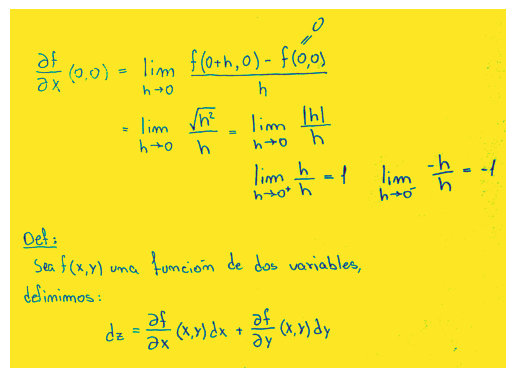 ∂f/∂x (0,0) = lim h→0 (f(0+h,0) - f(0,0))/h 0
= lim h→0 √h²/h = lim h→0 |h|/h
lim h→0⁺ h/h = 1 lim h→0⁻ -h/h = -1
Def:
Sea f(x,y) una función de dos variables,
definimos:
dz = ∂f/∂x (x,y) dx + ∂f/∂y (x,y) dy